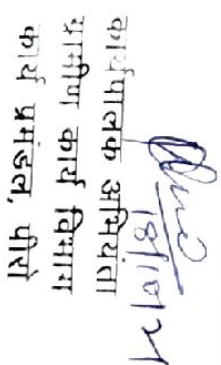 कार्यपालक अभियंता
ग्रामीण कार्य विभाग
कार्य प्रमंडल, पीरो